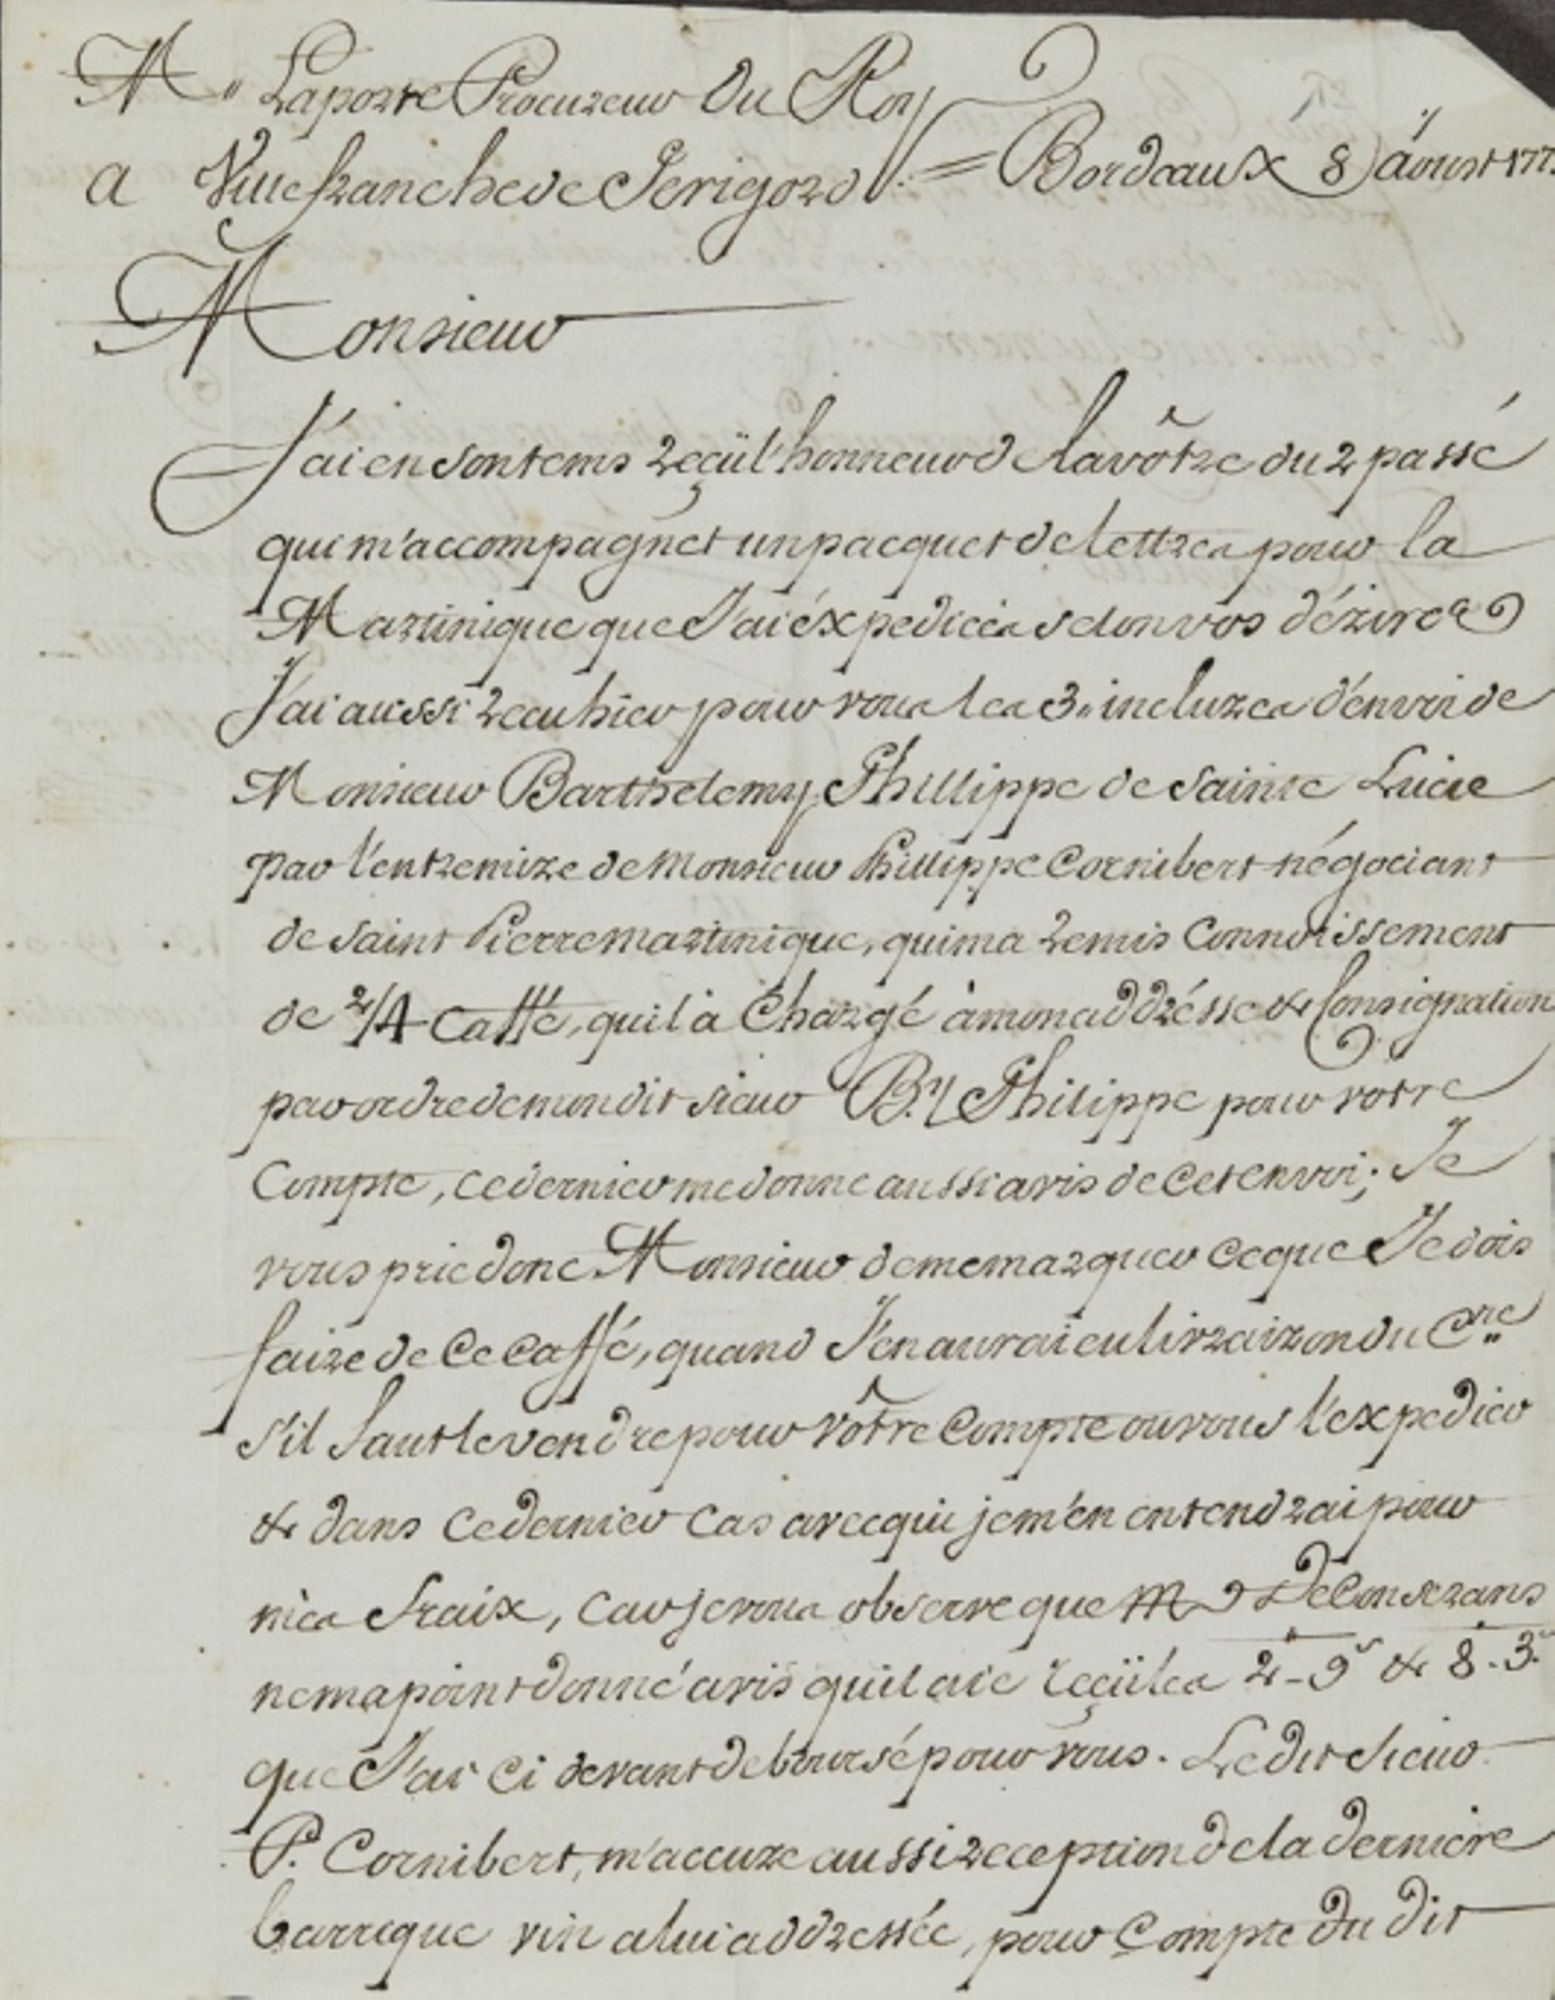 M.. Laporte Procureur Du Roy
a Villefranche de Perigord = Bordeaux 8 aoust 177
Monsieur
J'ai en son tems reçü l'honneur de la vôtre du 2 passé
qui m'accompagnet un pacquet de lettres pour la
Martinique que J'ai éxpediées selon vos dézires
J'ai aussi recu hier pour vous les 3.. incluzes d'énvoi de
Monsieur Barthelemy Phillippe de Sainte Lucie
par l'entremize de Monsieur Phillippe Cornibert négociant
de Saint Pierre Martinique, qui ma remis Connoissement
de 2/4 Caffé, quil à Chargé à mon addrésse & Consignation
par ordre de mon dit sieur B.y Philippe pour vôtre
Compte, ce dernier me donne aussi avis de Cet envoi; Je
vous prie donc Monsieur de me marquer Ce que Je dois
faire de Ce Caffé, quand J'en aurai eu livraizon du C.re
S'il faut le vendre pour Vôtre Compte ou vous l'expedier
& dans Ce dernier Cas avec qui je m'én entendrai pour
mes fraix, Car je vous observe que M.r De Conserans
ne ma point donné avis quil aie reçü les 2-9s & 8.3s
que J'ai Ci devant deboursé pour vous. Le dit Sieur
P. Cornibert, m'accuze aussi reception de la derniere
barrique vin a lui addressée, pour Compte du dit